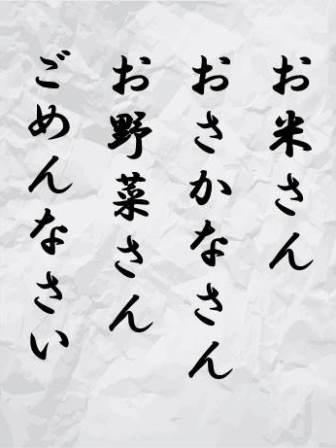 お米さん
おさかなさん
お野菜さん
ごめんなさい